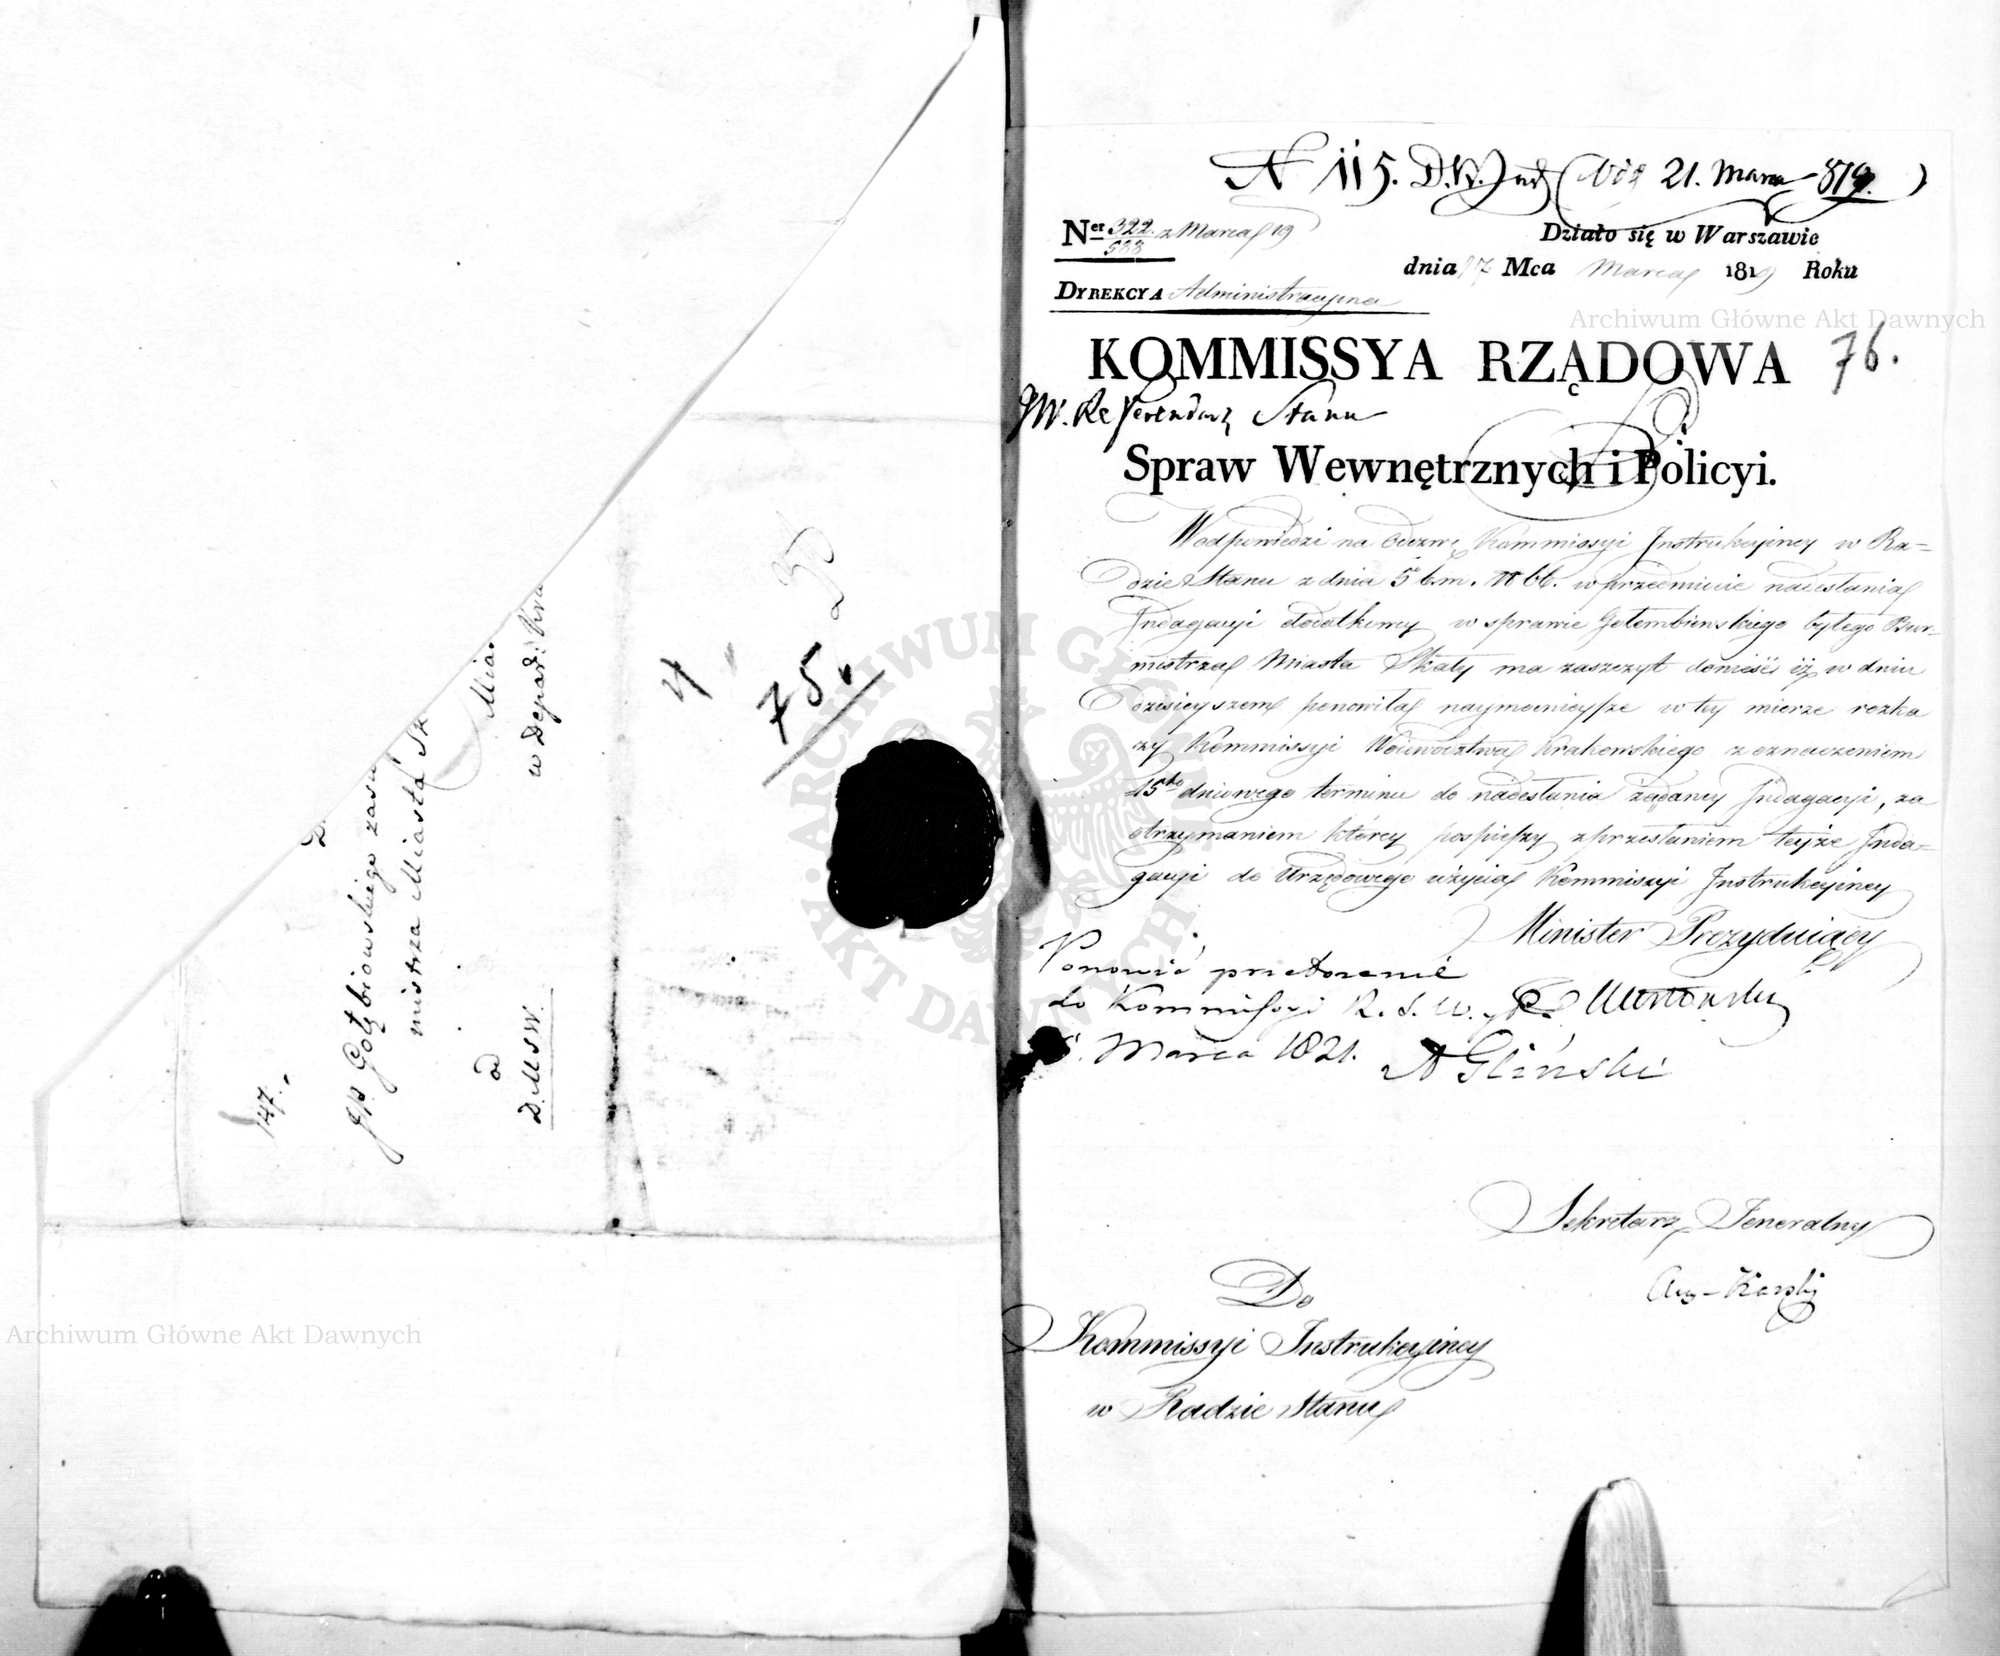 147.
JP. Gołębiowskiego
mistrza Miasta Sk
od
D. M S W.
Mias
w Depar: Kra
4
75.
N 115. D.W. 21. Marca 819.
Ner 322/588 z Marca 19
Działo się w Warszawie
dnia 17 Mca Marca 1819 Roku
DYREKCYA Administracyjna
KOMMISSYA RZĄDOWA
76.
JW. Referendarz Stanu
Spraw Wewnętrznych i Policyi.
W odpowiedzi na Odezwę Kommissyi Instrukcyiney w Ra=
dzie Stanu z dnia 5 b.m. N 66. w przedmiocie nadesłania
Indagacyi dodatkowey w sprawie Gołembiewskiego byłego Bur-
mistrza Miasta Skały ma zaszczyt donieść iż w dniu
dzisieyszem ponowiła naymocnieysze w tey mierze rozka
zy Kommissyi Woiewództwa Krakowskiego z oznaczeniem
15to dniowego terminu do nadesłania żądaney Indagacyi, za
otrzymaniem którey pospieszy z przesłaniem teyże Inda-
gacyi do Urzędowego użycia Kommissyi Instrukcyiney
Minister Prezyduiący
Ponowić
do Kommissyi R. S. W. y P.
Marca 1821.
A Gliński
Sekretarz Jeneralny
Aug. Karski
Do
Kommissyi Instrukcyiney
w Radzie Stanu
Archiwum Główne Akt Dawnych
Archiwum Główne Akt Dawnych
ARCHIWUM GŁÓWNE AKT DAWNYCH